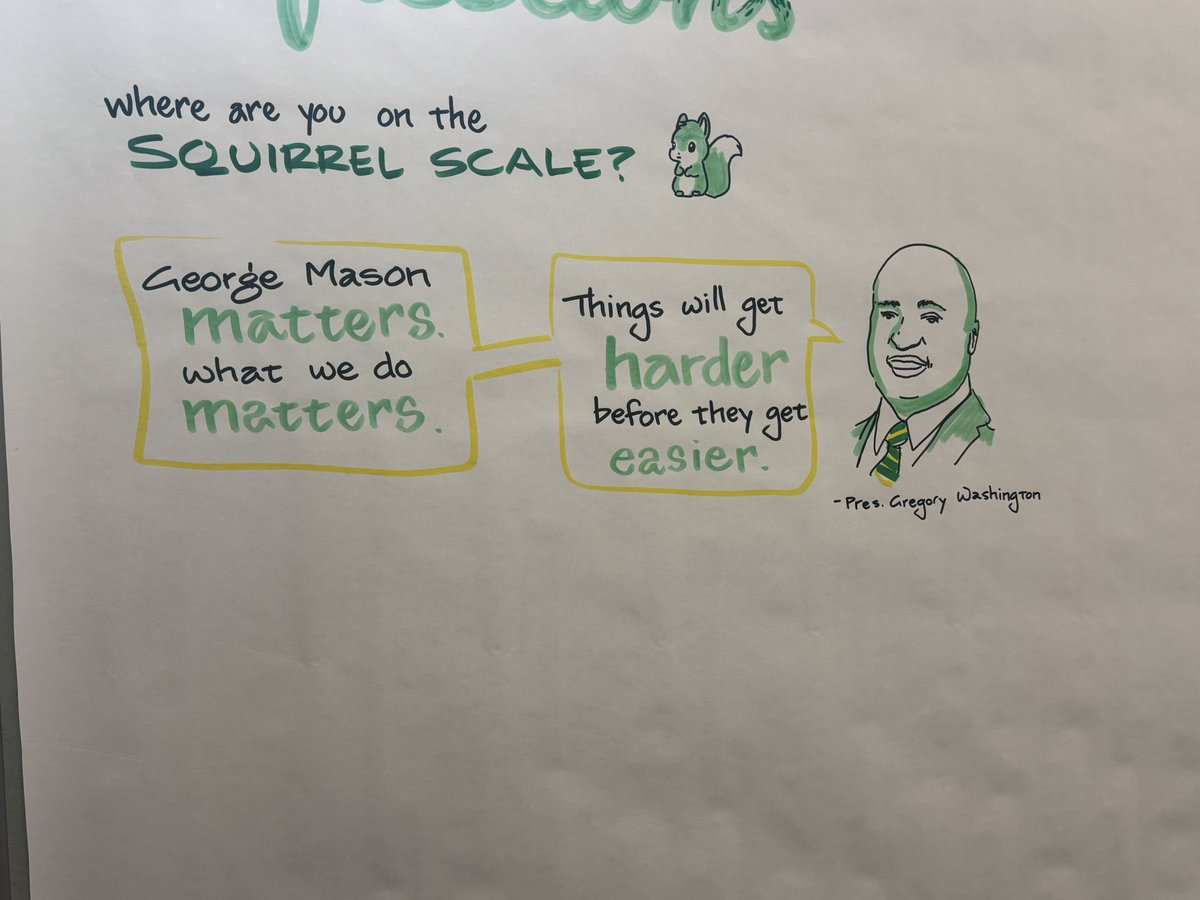 where are you on the
SQUIRREL SCALE?
George Mason
matters.
what we do
matters.
Things will get
harder
before they get
easier.
- Pres. Gregory Washington